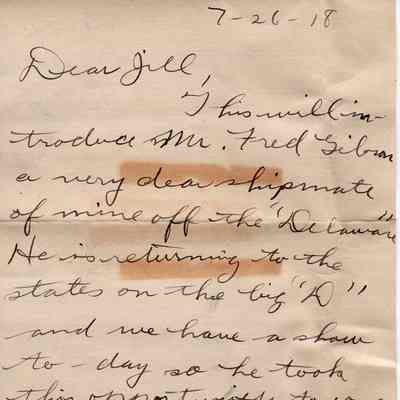 7-26-18
Dear Jill,
This will in-
troduce Mr. Fred Gibson
a very dear shipmate
of mine off the "Delaware"
He is returning to the
states on the big "D"
and we have a show
to-day so he took
this opportunity to